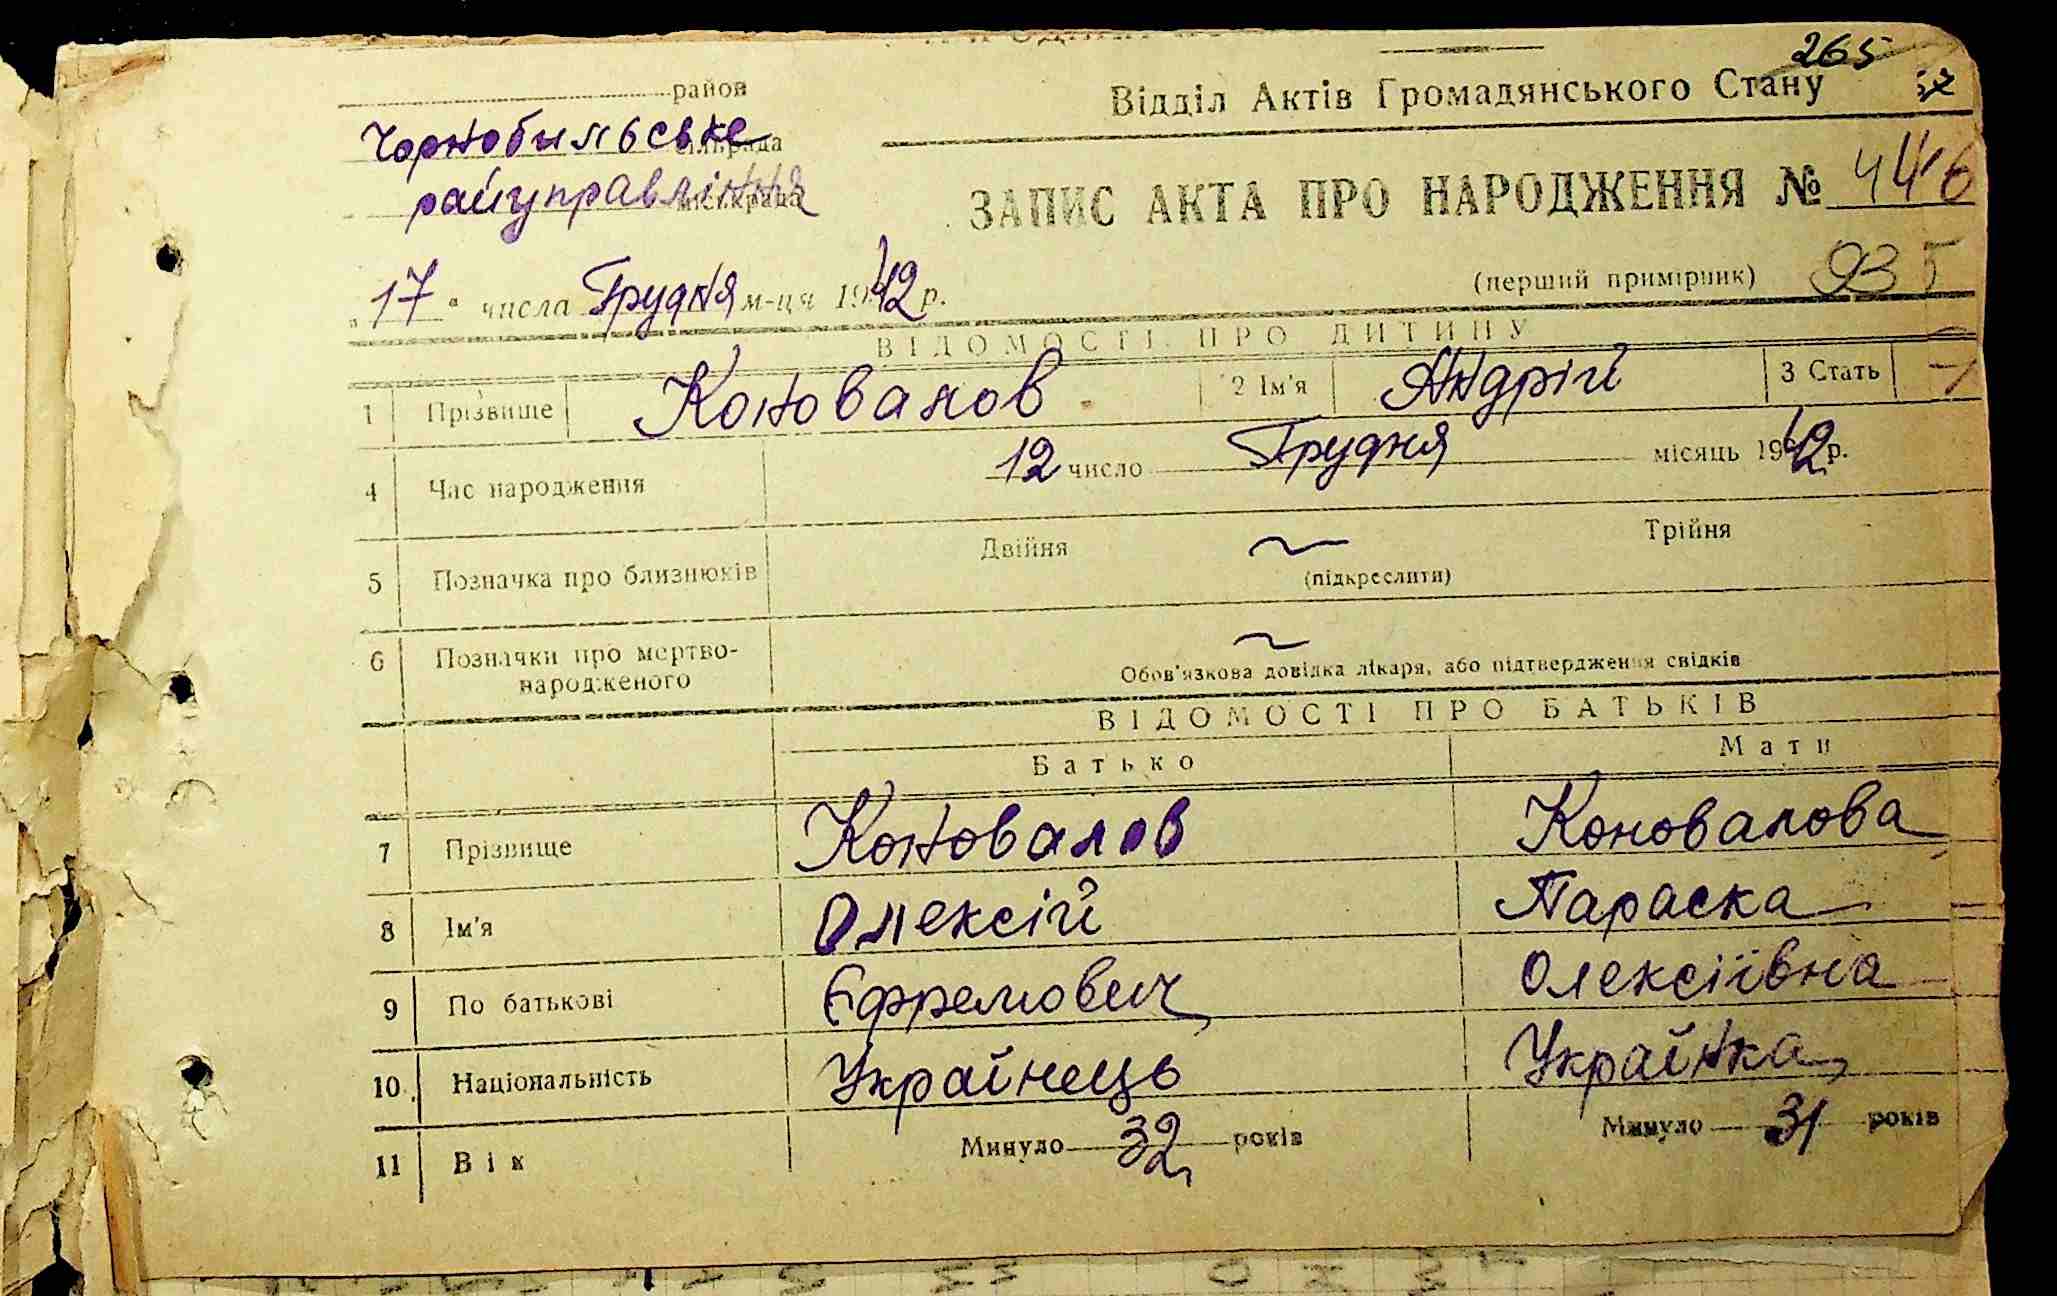 265
район
Відділ Актів Громадянського Стану 57
Чорнобильське
сільрада
райуправління
міськрада
ЗАПИС АКТА ПРО НАРОДЖЕННЯ № 446
(перший примірник) 935
„17“ числа Грудня м-ця 1942 р.
ВІДОМОСТІ ПРО ДИТИНУ
1 Прізвище Коновалов 2 Ім'я Андрій 3 Стать
4 Час народження 12 число Грудня місяць 1942 р.
Двійня Трійня
5 Позначка про близнюків (підкреслити)
6 Позначки про мертво-
народженого
Обов'язкова довідка лікаря, або підтвердження свідків
ВІДОМОСТІ ПРО БАТЬКІВ
Батько Мати
7 Прізвище Коновалов Коновалова
8 Ім'я Олексій Параска
9 По батькові Єфремович Олексіївна
10. Національність Украйнець Украйнка
11 Вік Минуло 32 років Минуло 31 років